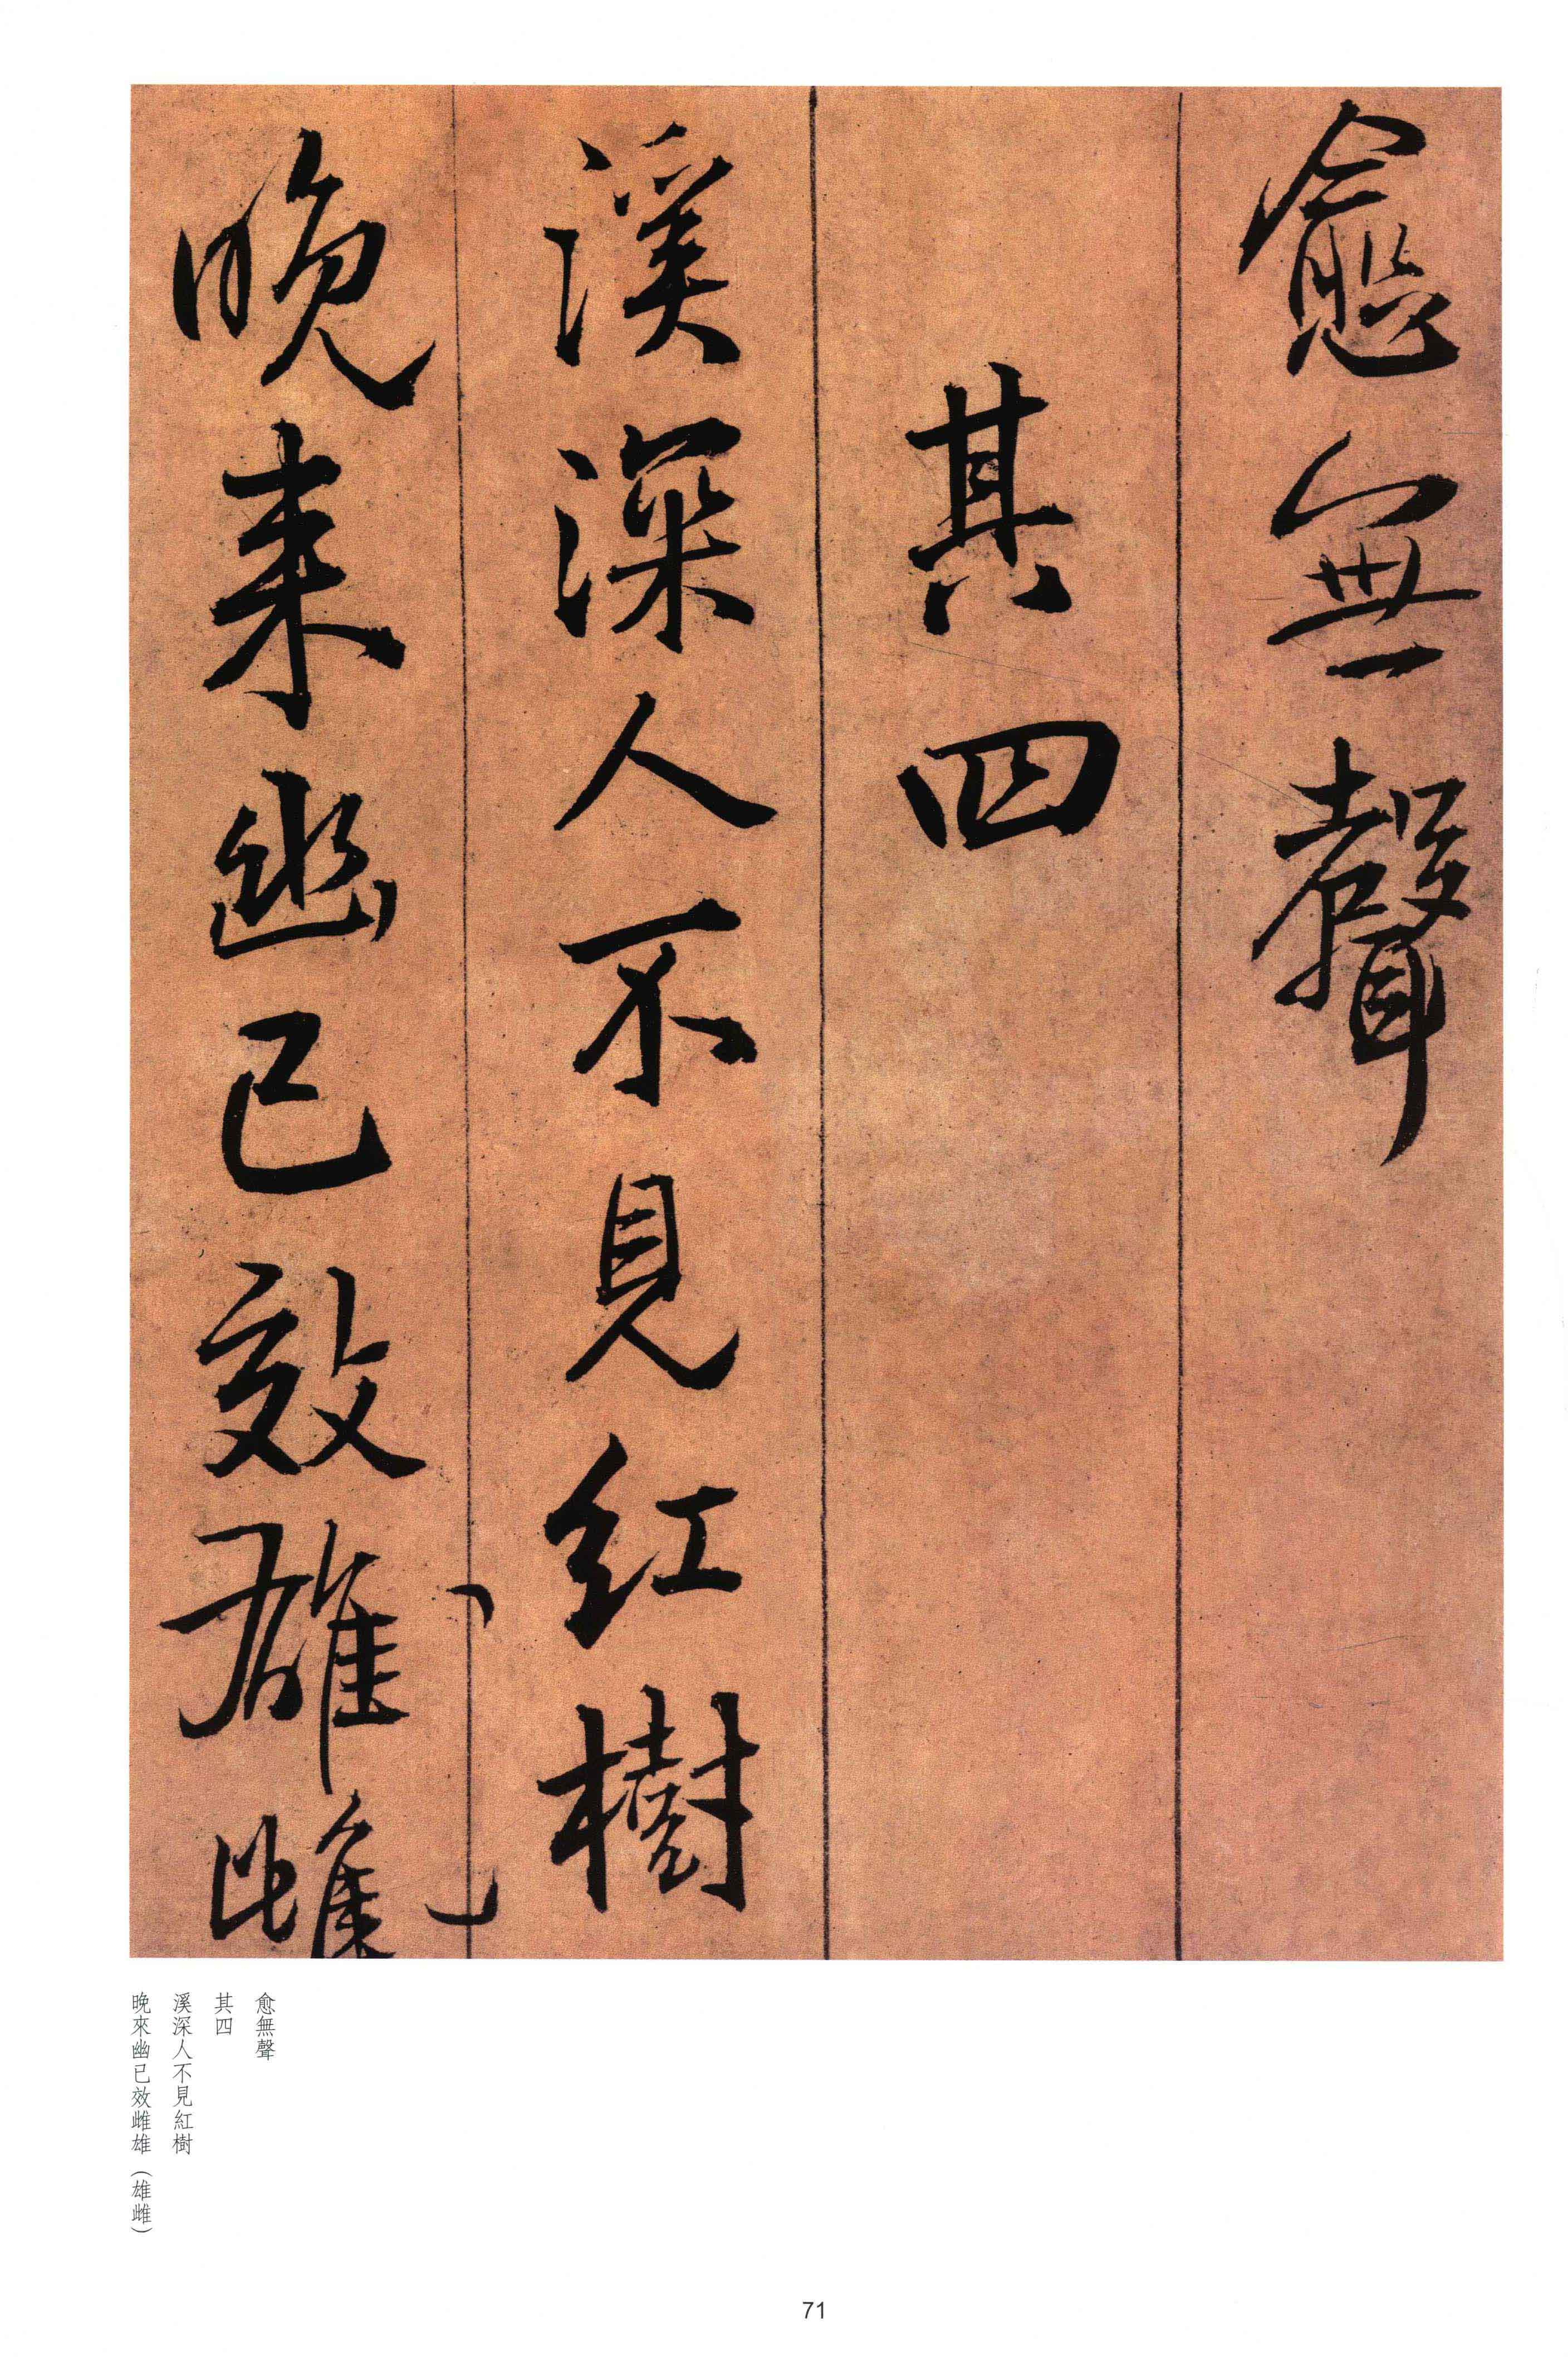 愈無聲
其四
溪深人不見紅樹
晚来幽已效雄雌
愈無聲
其四
溪深人不見紅樹
晚來幽已效雌雄（雄雌）
71